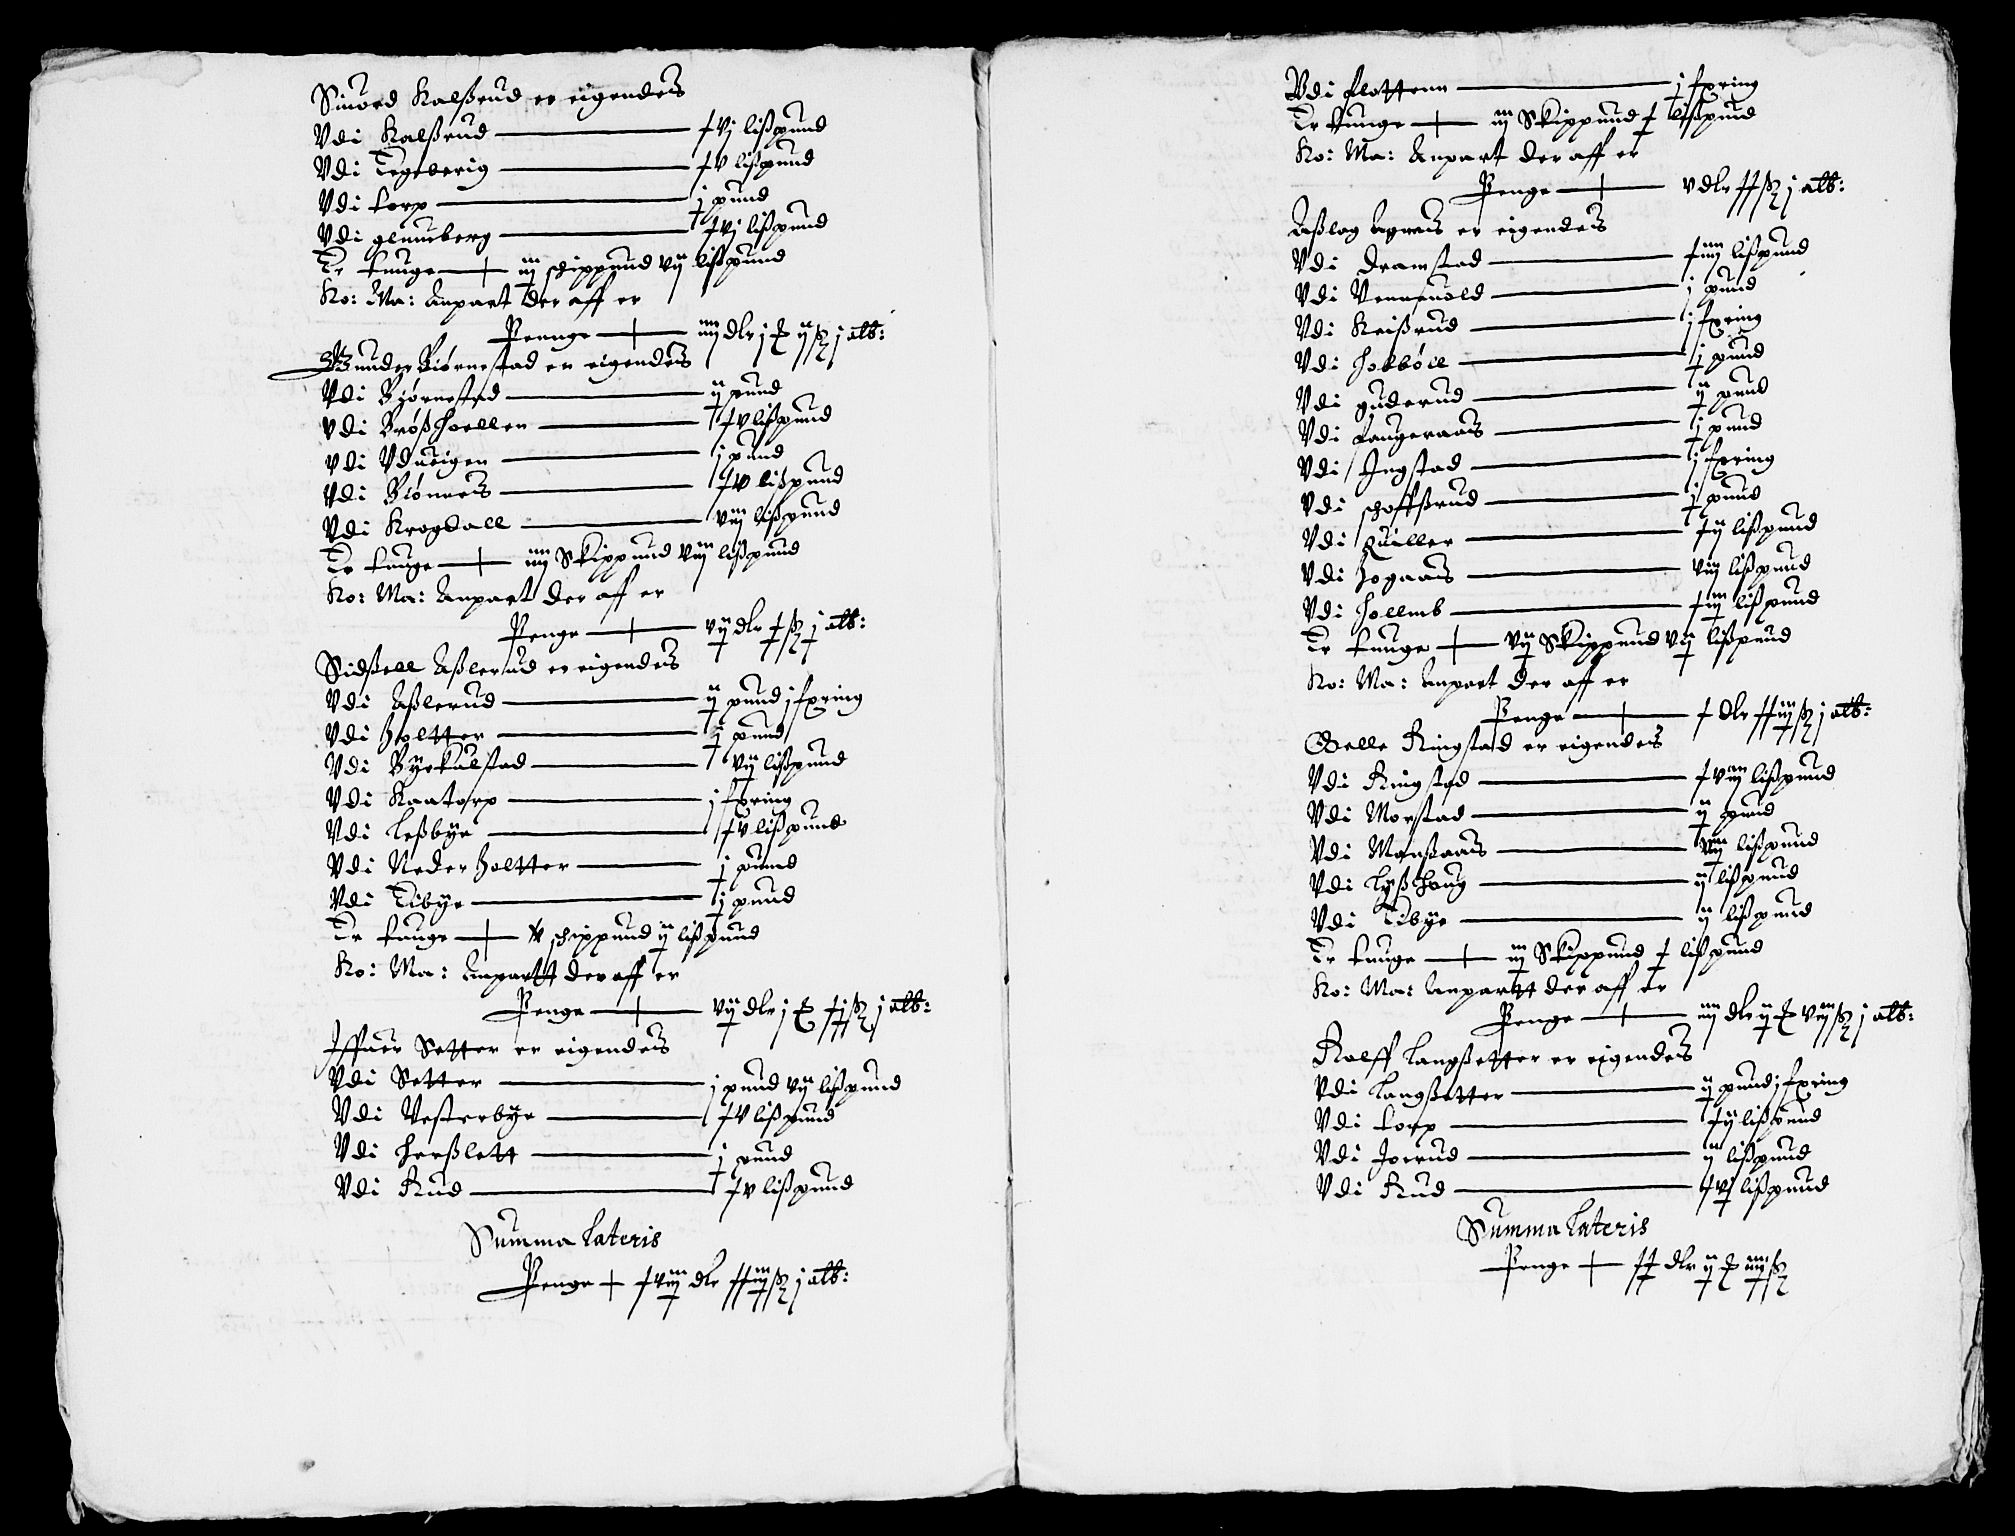 Siuord Kalßrud er eigendeis
Vdi Kalßrud — xvj lißpund
Vdi Tegeverig — xv lißpund
Vdi torp — j pund
Vdi glemberg — xvj lißpund
Er tunge — iij schippund vij lißpund
Ko: Ma: Anpart der aff er
Penge — iiij dlr j ß j alb:
Gunder Biørnestad er eigendeis
Vdi Biørnestad — ij pund
Vdi Brøßhoellen — xv lißpund
Vdi Vdueigen — j pund
Vdi Biønnes — xv lißpund
Vdi Krogdall — viij lißpund
Er tunge — iiij Skippund viij lißpund
Ko: Ma: Anpart der aff er
Penge — vij dlr x ß j alb:
Sidßell Aßlerud er eigendeis
Vdi Aßlerud — ij pund j fxring
Vdi Holtter — j pund
Vdi Byekulstad — vij lißpund
Vdi Kaatorp — j fxring
Vdi Leßbye — xv lißpund
Vdi Neder Holtter — j pund
Vdi Tibye — j pund
Er tunge — schippund ij lißpund
Ko: Ma: Anpartt der aff er
Penge — vij dlr j xxj ß j alb:
Iffuer Setter er eigendeis
Vdi Setter — j pund vij lißpund
Vdi Vesterbye — xv lißpund
Vdi Herßlett — j pund
Vdi Rud — xv lißpund
Summa Lateris
Penge — xviij dlr xxiij ß j alb:
Vdi Slottenn — j fxring
Er tunge — iij Skippund x lißpund
Ko: Ma: Anpart der aff er
Penge — v dlr xx ß j alb:
Aßlag Agnes er eigendeis
Vdi Dramstad — xiiij lißpund
Vdi Venneuold — j pund
Vdi Keißrud — j fxring
Vdi Holbøll — j pund
Vdi guderud — ij pund
Vdi Langeraas — j pund
Vdi Ingstad — j fxring
Vdi Schoffßrud — j pund
Vdi Quiller — xij lißpund
Vdi Hogaas — viij lißpund
Vdi Hollmb — xiij lißpund
Er tunge — vij Skippund vij lißpund
Ko: Ma: Anpart der aff er
Penge — x dlr xxiij ß j alb:
Gelle Ringstad er eigendeis
Vdi Ringstad — xviij lißpund
Vdi Morstad — ij pund
Vdi Monßaas — viij lißpund
Vdi Lyßhoug — ij lißpund
Vdi Tibye — ij lißpund
Er tunge — iij Skippund x lißpund
Ko: Ma: Anpartt der aff er
Penge — iiij dlr ij viij ß j alb:
Rolff Langßetter er eigendeis
Vdi Langßetter — ij pund j fxring
Vdi torp — xij lißpund
Vdi Joerud — ij lißpund
Vdi Rud — xvj lißpund
Summa Lateris
Penge — xx dlr ij iiij ß